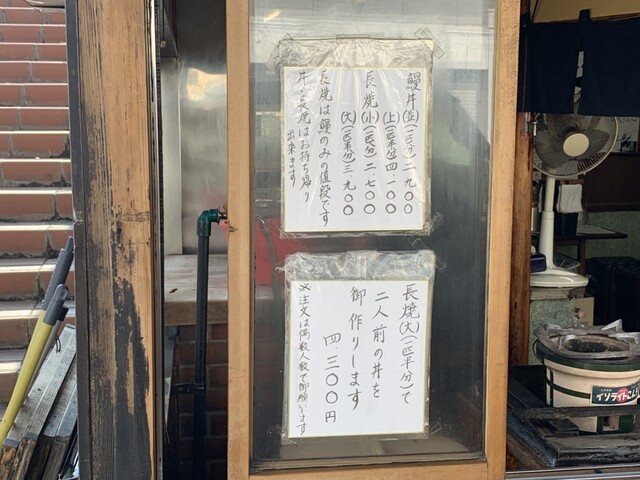 鰻丼(並)(一匹分)二、九〇〇
(上)(一匹半分)四、一〇〇
長焼(小)(一匹分)二、七〇〇
(大)(一匹半分)三、九〇〇
長焼は鰻のみの値段です
丼・長焼はお持ち帰り
出来ます
長焼(大)(一匹半分)で
二人前の丼を
御作りします
四三〇〇円
※注文は偶数人数で御願いします
イソライトこんろ